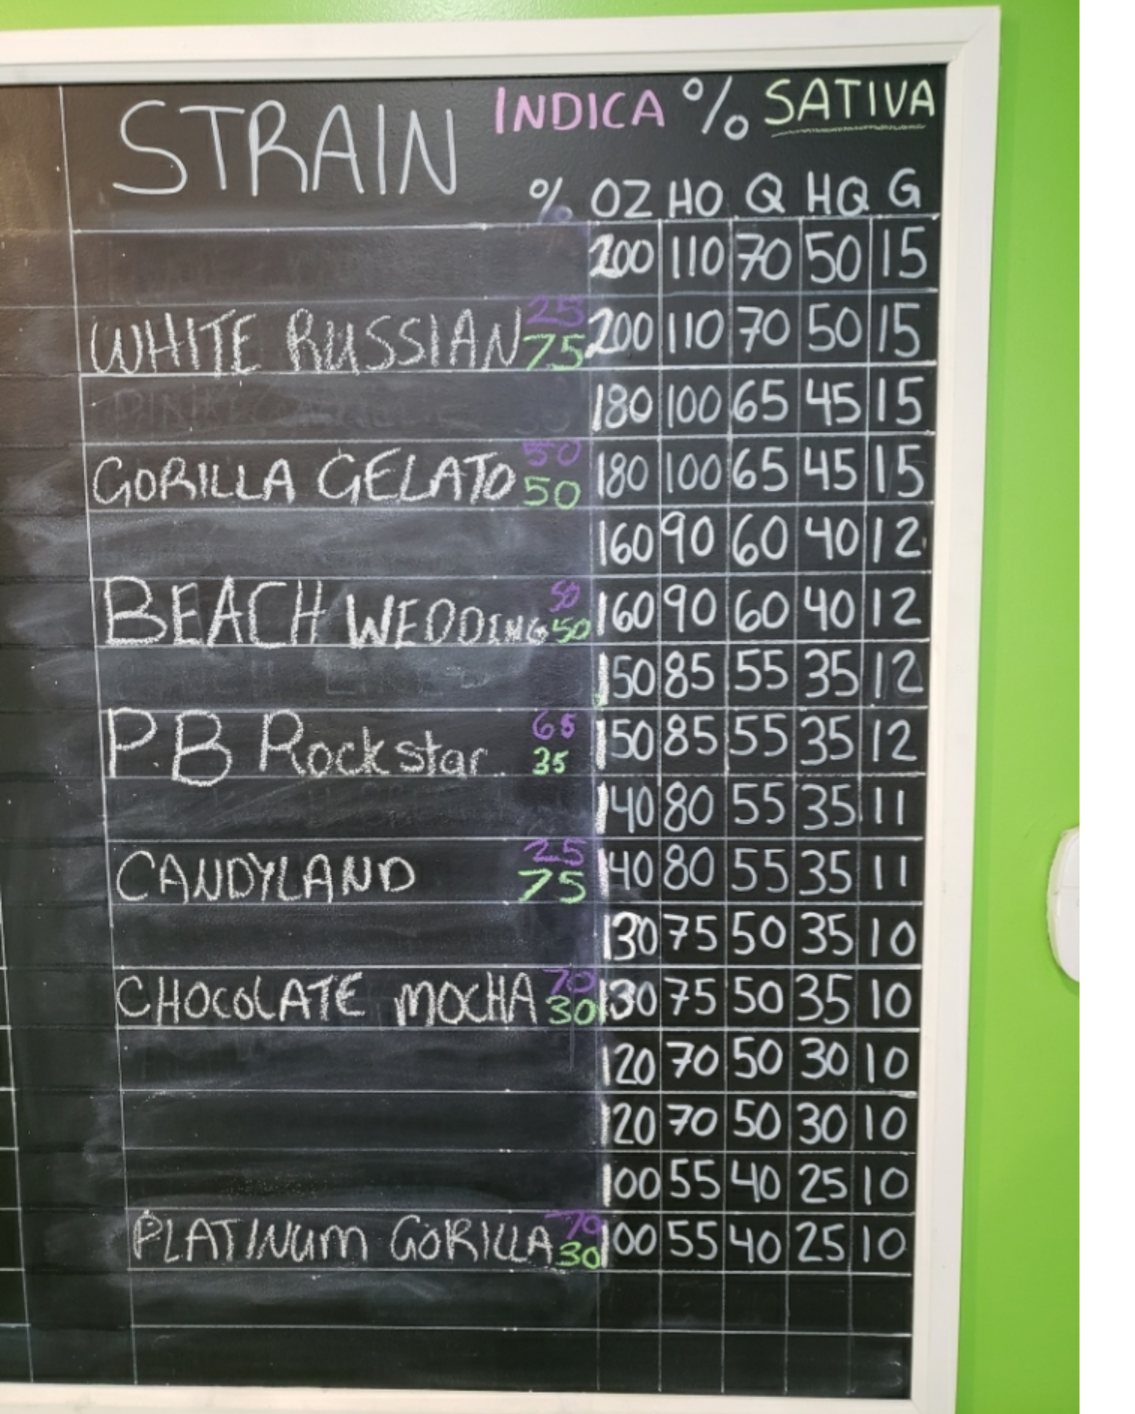 STRAIN INDICA % SATIVA
% OZ HO Q HQ G
200 110 70 50 15
WHITE RUSSIAN 25 75 200 110 70 50 15
180 100 65 45 15
GORILLA GELATO 50 50 180 100 65 45 15
160 90 60 40 12
BEACH WEDDING 50 50 160 90 60 40 12
150 85 55 35 12
P.B Rockstar 65 35 150 85 55 35 12
140 80 55 35 11
CANDYLAND 25 75 140 80 55 35 11
130 75 50 35 10
CHOCOLATE MOCHA 70 30 130 75 50 35 10
120 70 50 30 10
120 70 50 30 10
100 55 40 25 10
PLATINUM GORILLA 70 30 100 55 40 25 10